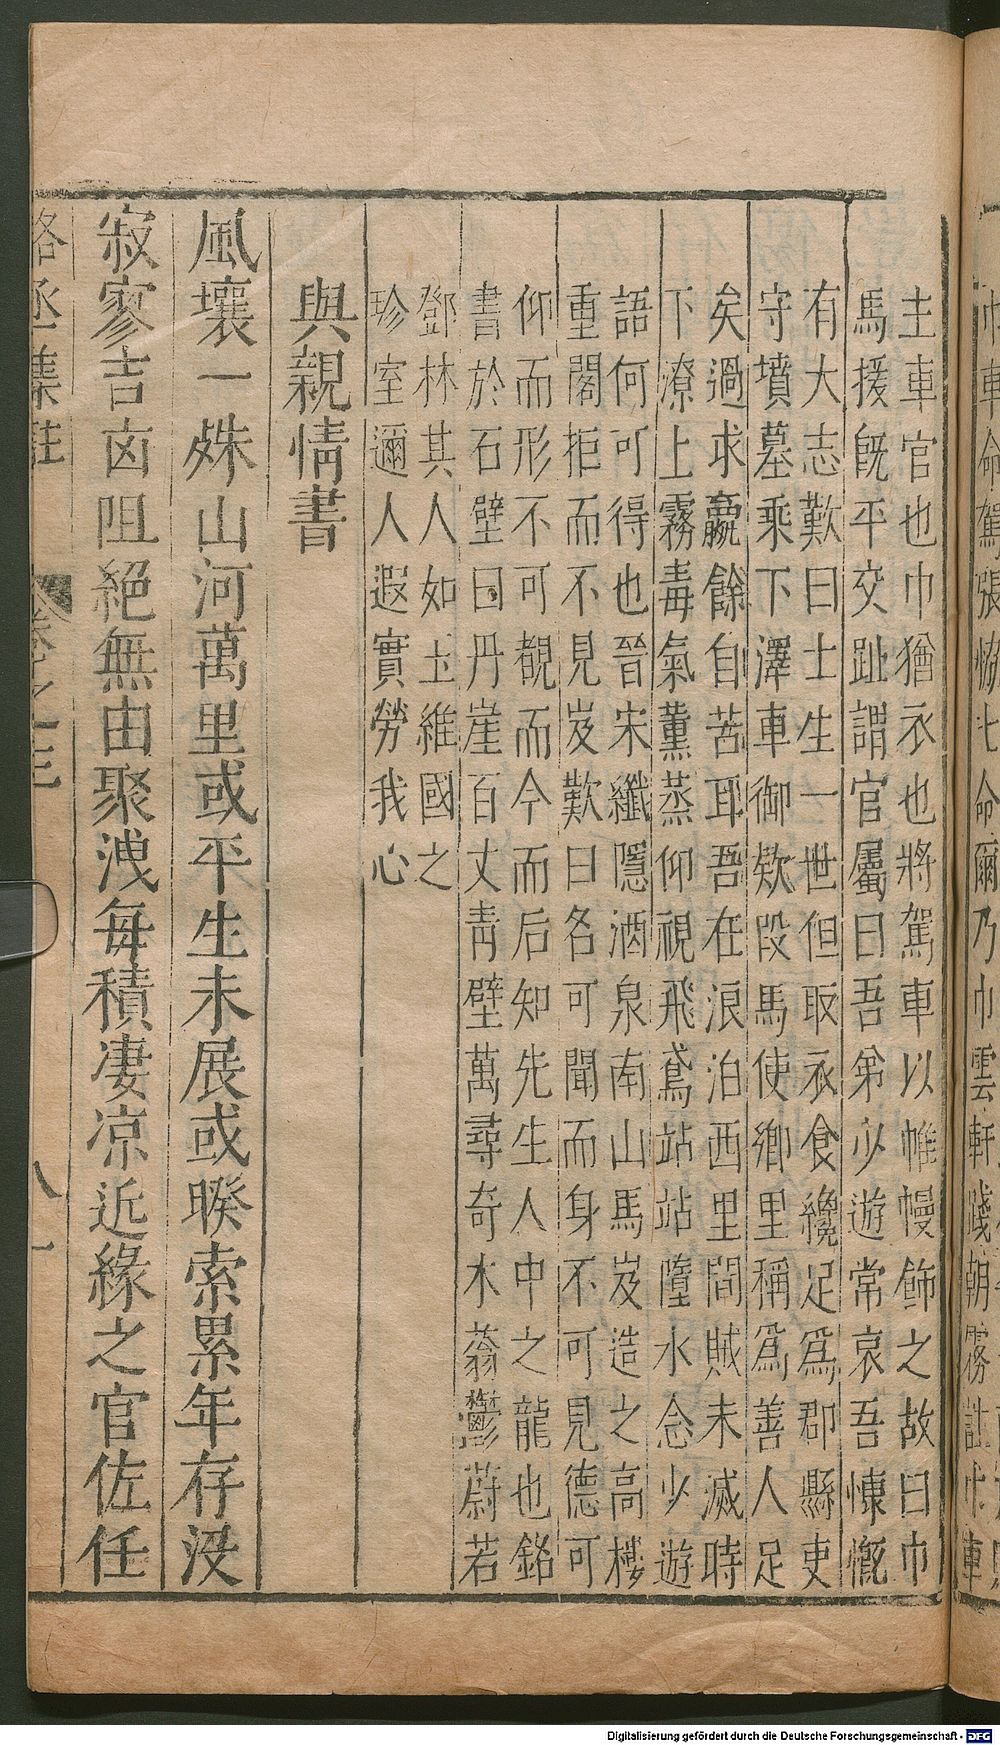 主車官也巾猶衣也將駕車以帷幔飾之故曰巾
馬援既平交趾謂官屬曰吾弟少遊常哀吾慷慨
有大志歎曰士生一世但取衣食纔足為郡縣吏
守墳墓乘下澤車御欵段馬使鄉里稱爲善人足
矣過求贏餘自苦耳吾在浪泊西里間賊未滅時
下潦上霧毒氣薰蒸仰視飛鳶站站墮水念少遊
語何可得也晉宋纖隱酒泉南山馬岌造之高樓
重閣拒而不見岌歎曰名可聞而身不可見德可
仰而形不可覩而今而后知先生人中之龍也銘
書於石壁曰丹崖百丈靑壁萬尋奇水蓊鬱蔚若
鄧林其人如玉維國之
珍室邇人遐實勞我心
與親情書
風壤一殊山河萬里或平生未展或暌索累年存没
寂寥吉凶阻絕無由聚洩每積凄凉近緣之官佐任
駱丞集註 卷之三 八一
Digitalisierung gefördert durch die Deutsche Forschungsgemeinschaft - DFG